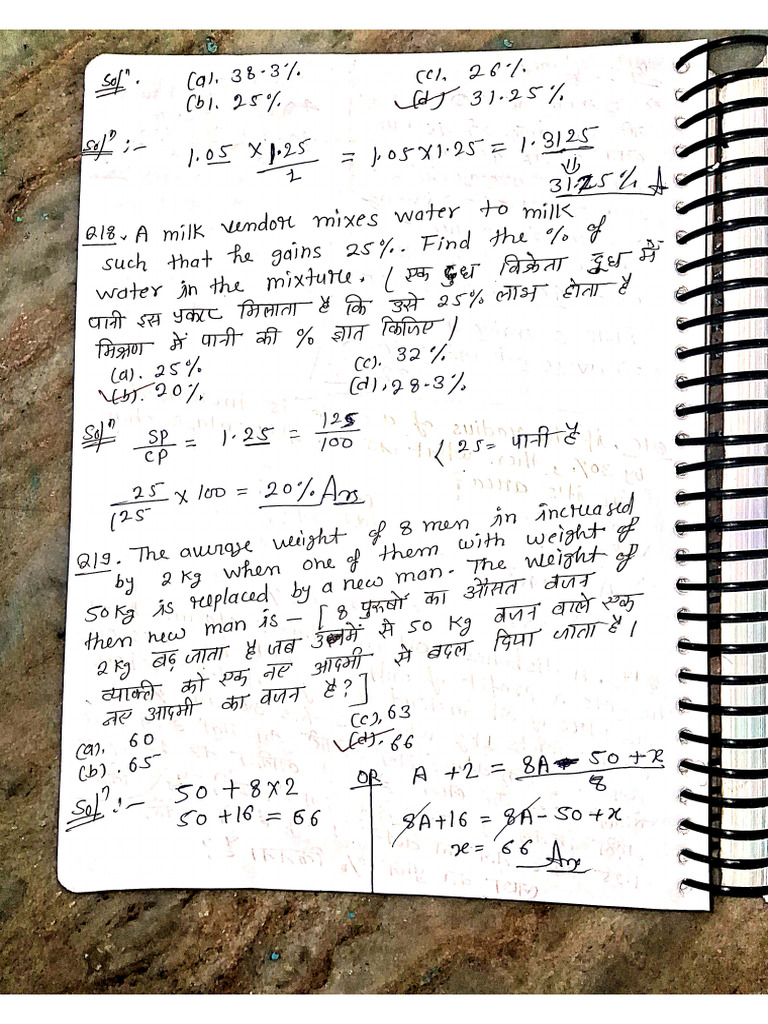 Solⁿ. (a). 38.3% (c). 26%
(b). 25% (d) 31.25%
Solⁿ :- 1.05 × 1.25 / 1 = 1.05×1.25 = 1.3125
⇓
31.25% A
Q18. A milk vendor mixes water to milk
such that he gains 25%. Find the % of
water in the mixture. ( एक दुध विक्रेता दुध में
पानी इस प्रकार मिलाता है कि उसे 25% लाभ होता है
मिश्रण में पानी की % ज्ञात किजिए )
(a). 25% (c). 32%
(b). 20% (d). 28.3%
Solⁿ SP/CP = 1.25 = 125/100 ( 25 = पानी है
25/125 × 100 = 20% Ans
Q19. The average weight of 8 men in increased
by 2 Kg when one of them with weight of
50Kg is replaced by a new man. The weight of
then new man is - [ 8 पुरूषों का औसत वजन
2 Kg बढ़ जाता है जब उनमें से 50 Kg वजन वाले एक
व्याक्ती को एक नए आदमी से बदल दिया जाता है।
नए आदमी का वजन है? ]
(a). 60 (c). 63
(b). 65 (d). 66
Solⁿ :- 50 + 8×2 OR A + 2 = 8A - 50 + x / 8
50 + 16 = 66 8A + 16 = 8A - 50 + x
x = 66 Ans